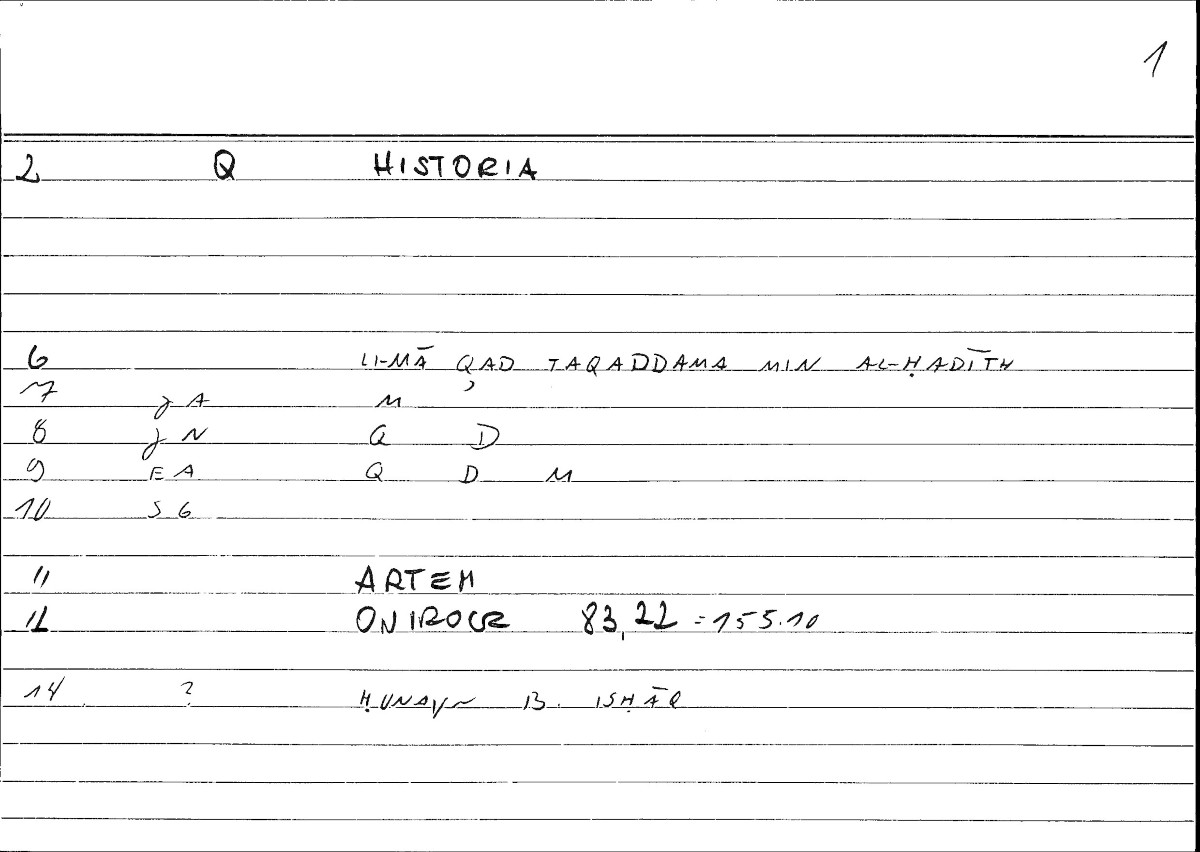 1
2 Q HISTORIA
6 LI-MĀ QAD TAQADDAMA MIN AL-ḤADĪTH
7 JA M
8 JN Q D
9 EA Q D M
10 SG
11 ARTEM
12 ONIROCR 83,22 = 155.10
14 ? ḤUNAYN B. ISḤĀQ